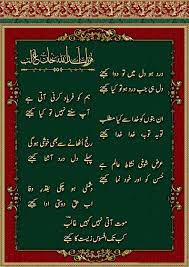 درد ہو دل میں تو دوا کیجے
دل ہی جب درد ہو تو کیا کیجے
ہم کو فریاد کرنی آتی ہے
آپ سنتے نہیں تو کیا کیجے
ان بتوں کو خدا سے کیا مطلب
توبہ توبہ خدا خدا کیجے
رنج اٹھانے سے بھی خوشی ہوگی
پہلے دل درد آشنا کیجے
عرض شوخی نشاط عالم ہے
حسن کو اور خود نما کیجے
دشمنی ہو چکی بہ قدر وفا
اب حق دوستی ادا کیجے
موت آتی نہیں کہیں غالب
کب تک افسوس زیست کا کیجے